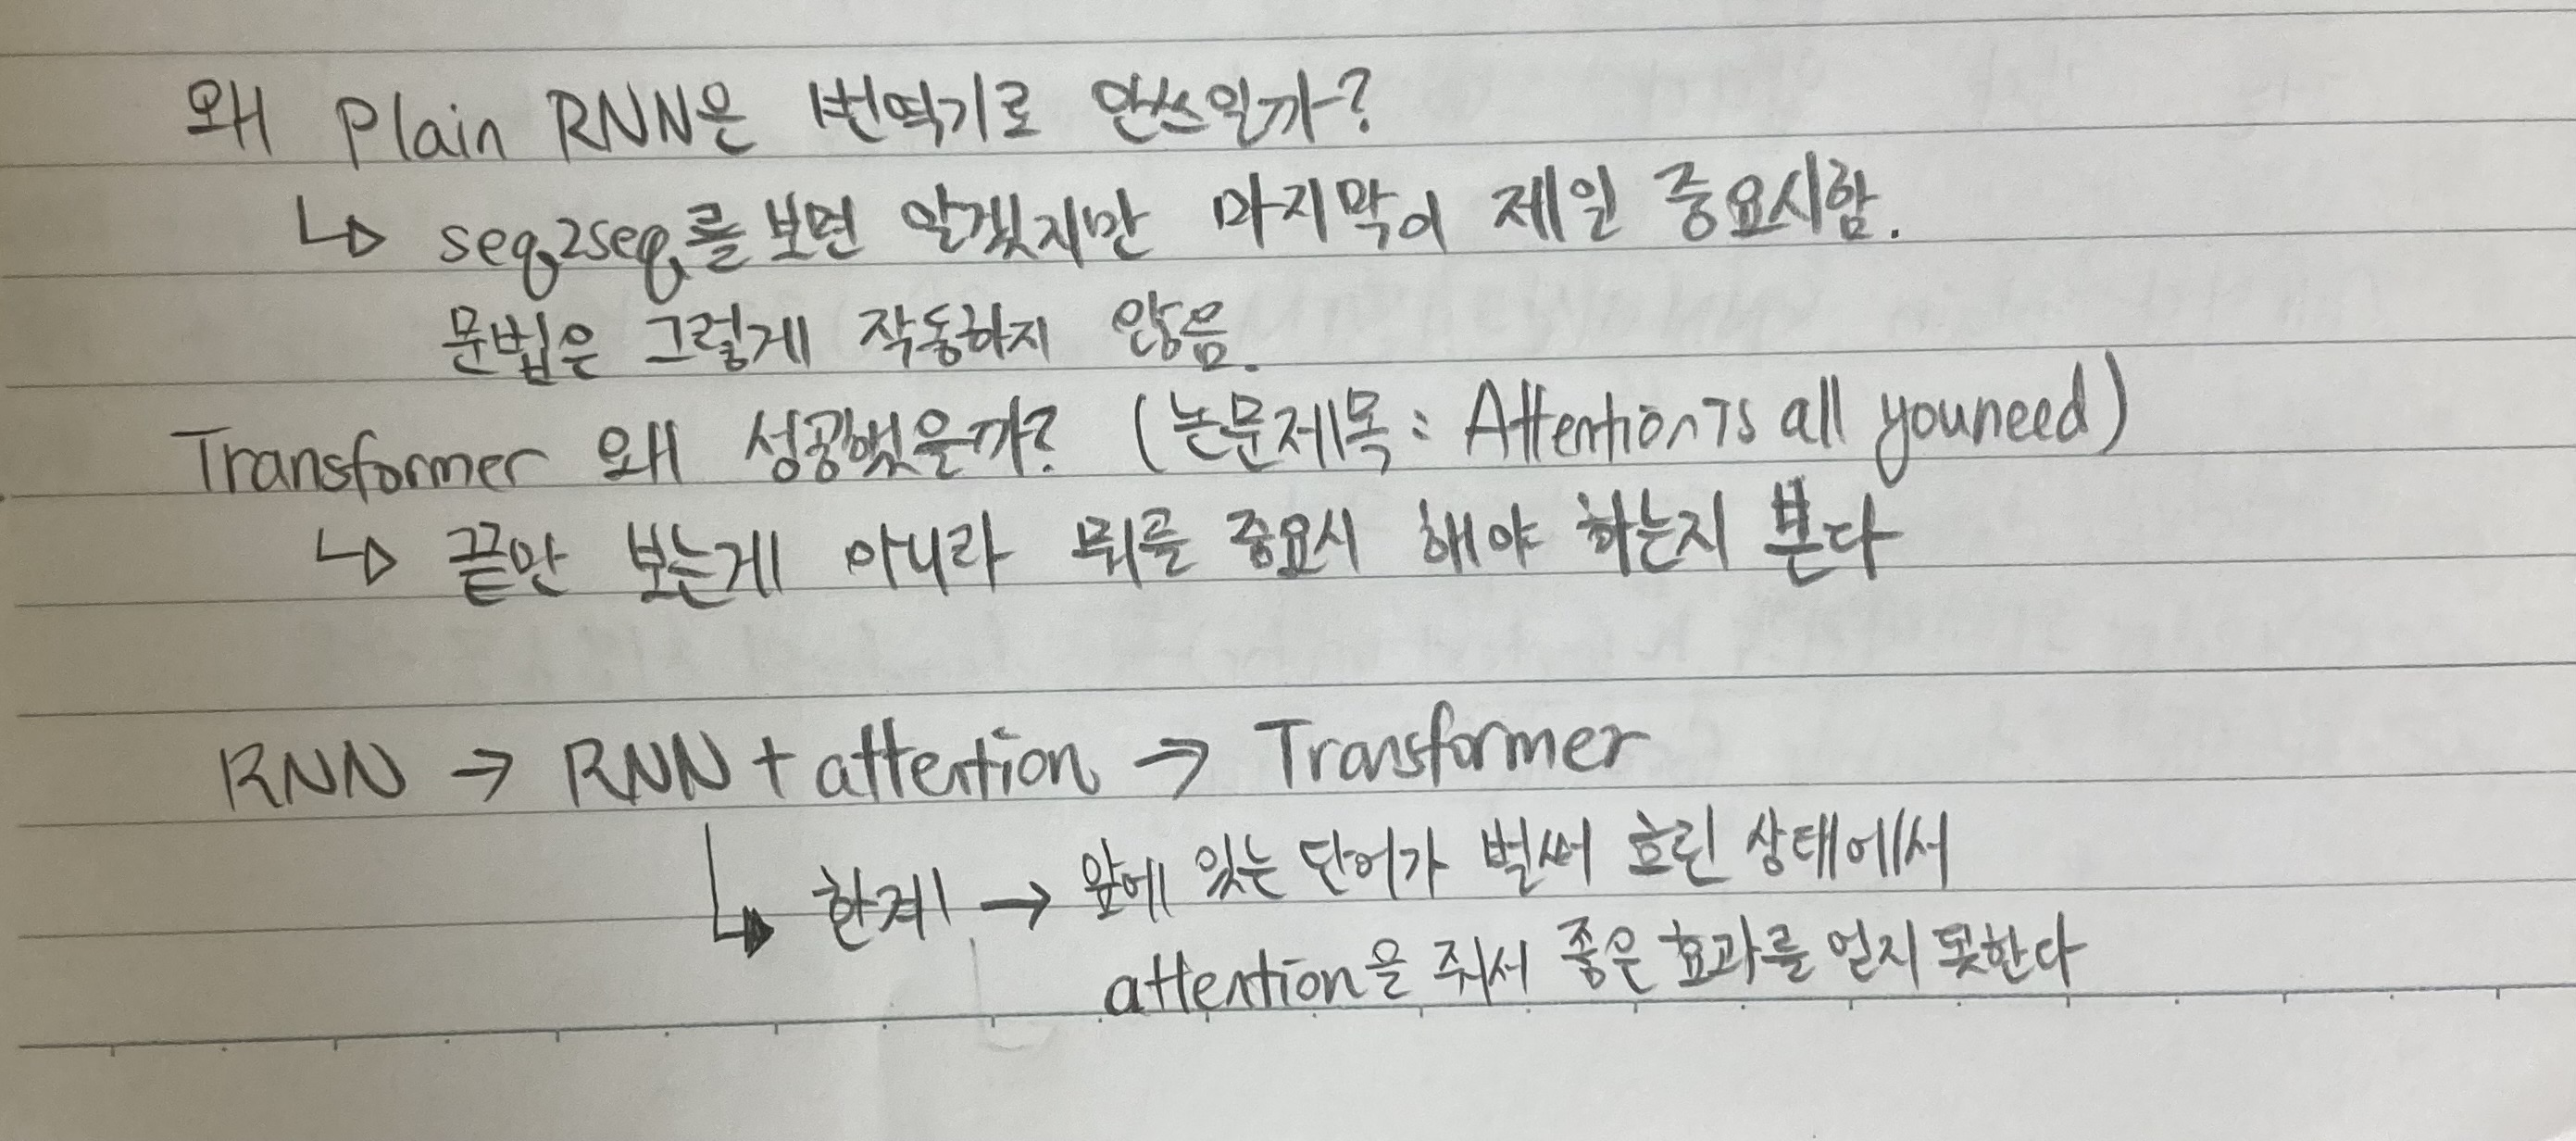 왜 Plain RNN은 번역기로 안쓰일까?
↳ seq2seq를 보면 알겠지만 마지막이 제일 중요시함.
문법은 그렇게 작동하지 않음.
Transformer 왜 성공했을까? (논문제목: Attention Is all you need)
↳ 끝만 보는게 아니라 뭐를 중요시 해야 하는지 본다
RNN → RNN + attention → Transformer
↳ 한계 → 앞에 있는 단어가 벌써 흐린 상태에서
attention을 줘서 좋은 효과를 얻지 못한다